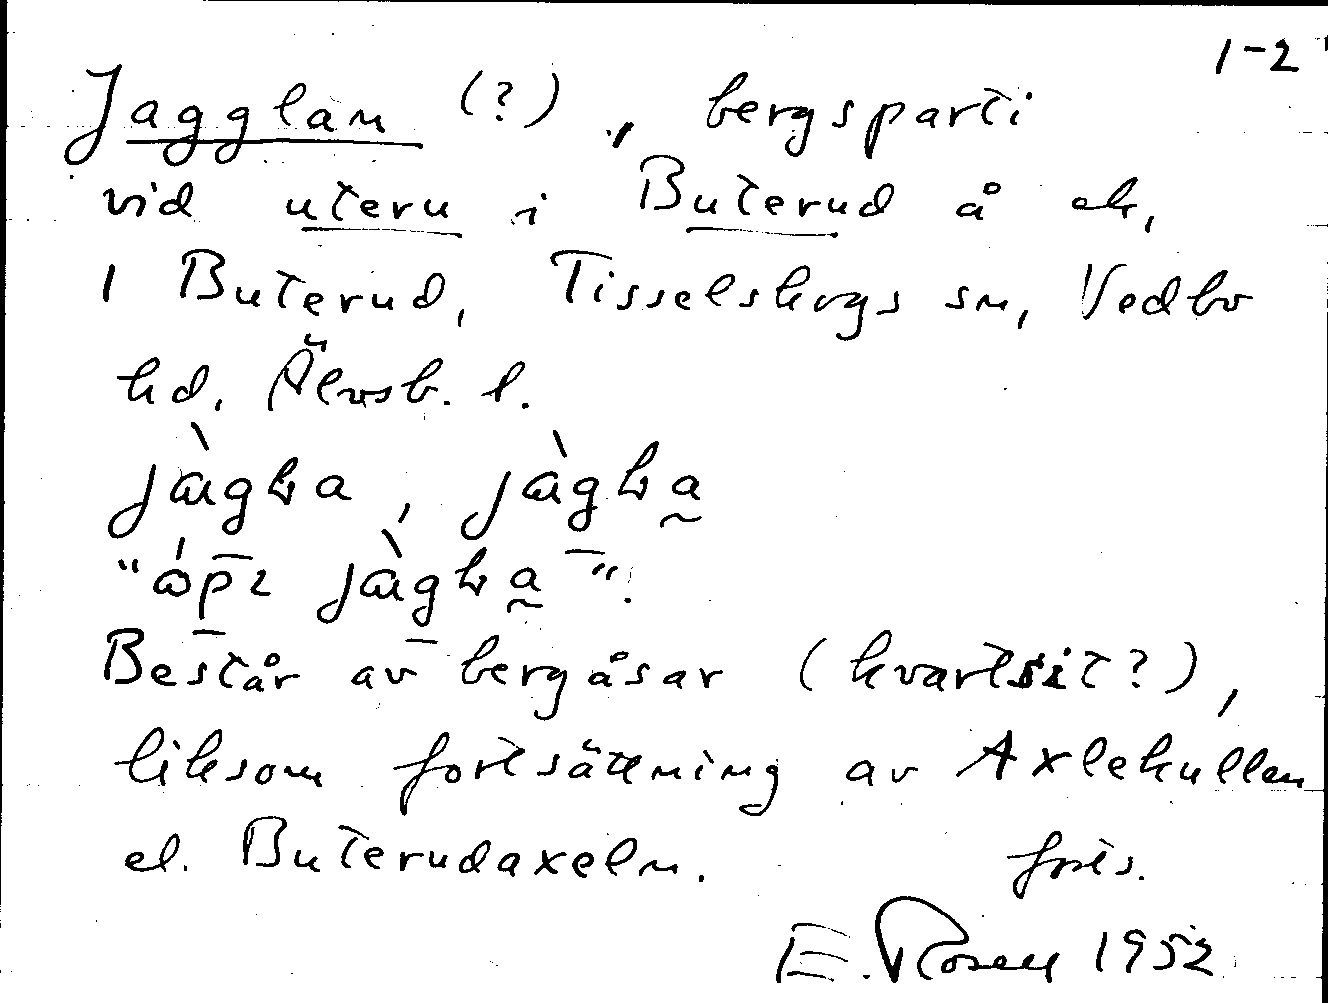 1-2
Jagglan (?), bergsparti
vid uteru i Buterud å ek,
1 Buterud, Tisselskogs sn, Vedbo
hd, Älvsb. l.
Består av bergåsar (kvartsit?),
liksom fortsättning av Axlekullen
el. Buterudaxeln. forts.
E. Rosell 1952